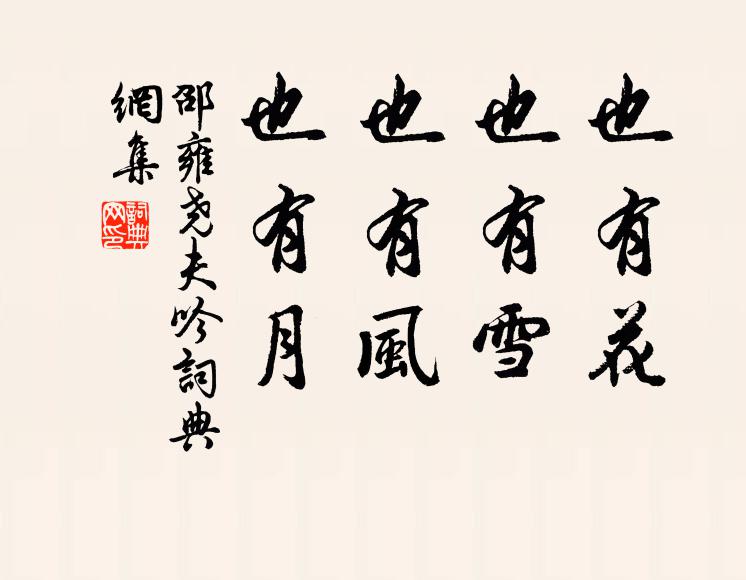 也有花
也有雪
也有風
也有月
邵雍尧夫吟詞典
網集
詞典
网印